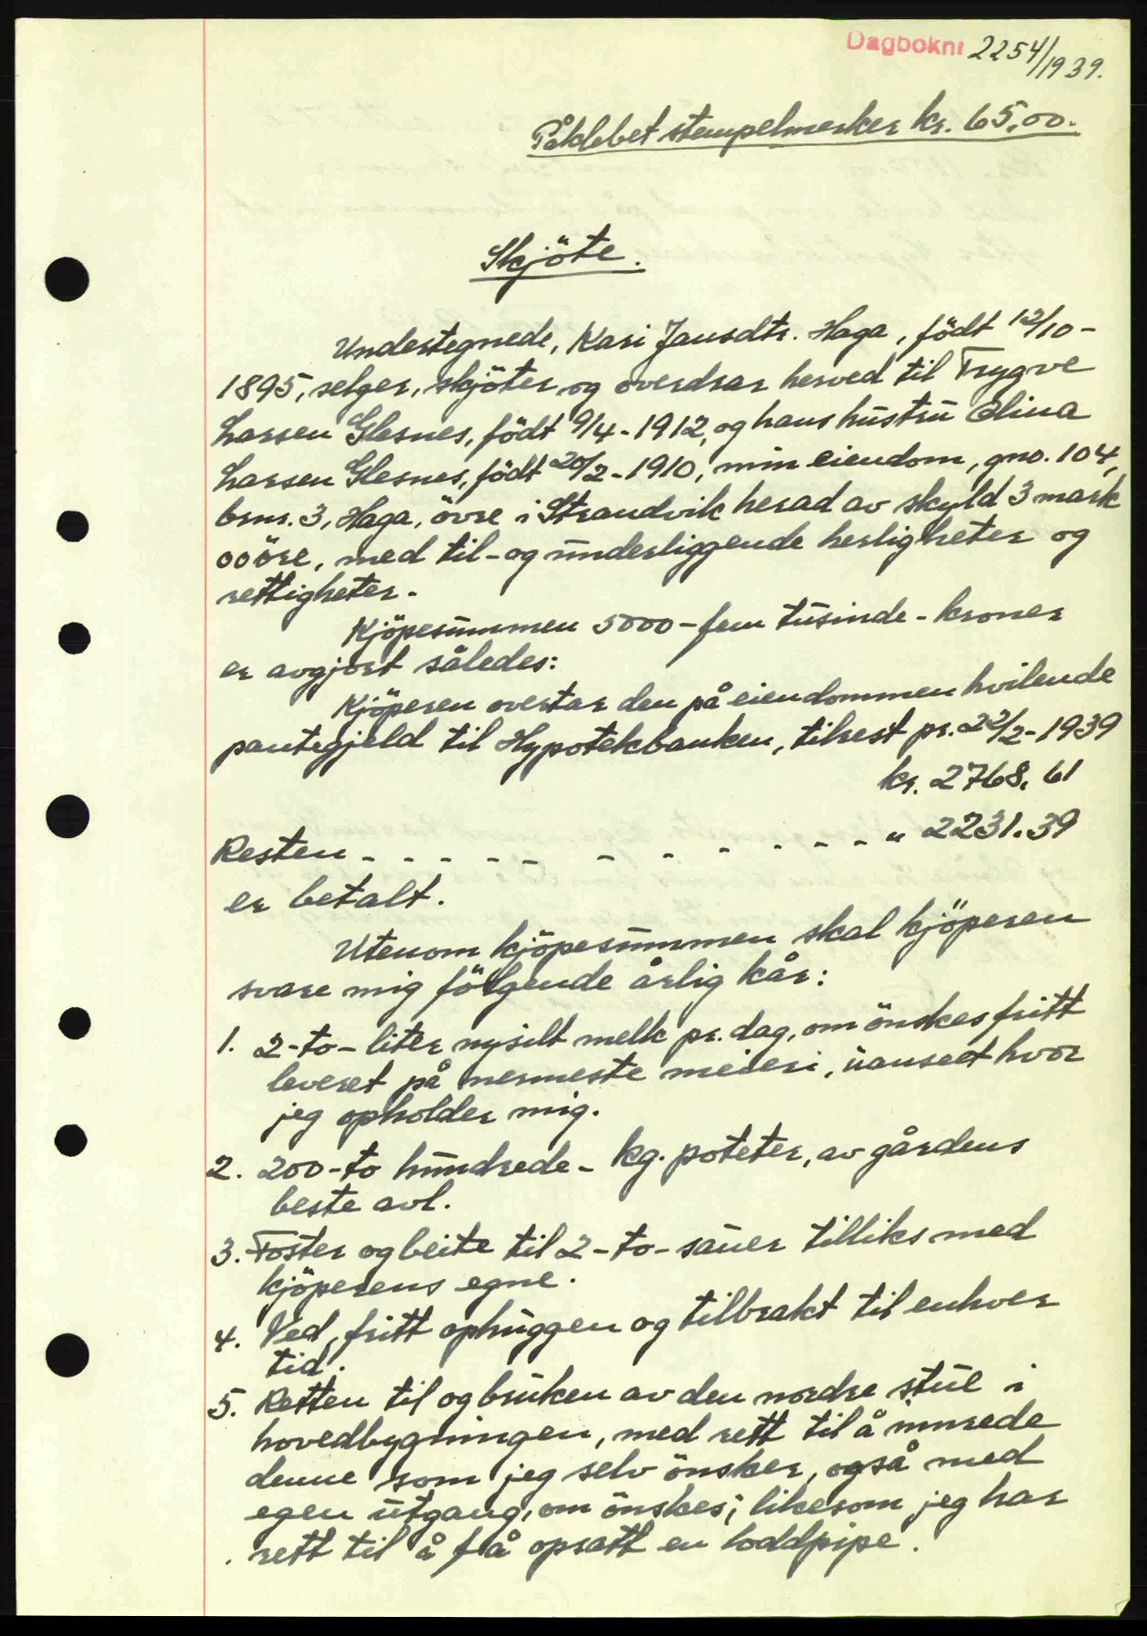 Dagboknr 2254/1939.
Påklebet stempelmerker kr. 65,00.
Skjöte.
Undertegnede, Kari Jansdtr. Haga, födt 12/10-
1895, selger, skjöter og overdrar herved til Trygve
Larsen Glesnes, födt 9/4-1912, og hans hustru Elina
Larsen Glesnes, födt 20/2-1910, min eiendom, gno. 104,
brnr. 3, Haga, övre i Strandvik herad av skyld 3 mark
00 öre, med til- og underliggende herligheter og
rettigheter.
Kjöpesummen 5000-fem tusinde-kroner
er avgjort således:
Kjöperen overtar den på eiendommen hvilende
pantegjeld til Hypotekbanken, tilrest pr. 22/2-1939
kr. 2768,61
Resten - - - - - - - - - - - - " 2231.39
er betalt.
Utenom kjöpesummen skal kjöperen
svare mig fölgende årlig kår:
1. 2-to-liter nysilt melk pr. dag, om önskes fritt
leveret på nermeste meieri, uanseet hvor
jeg opholder mig.
2. 200-to hundrede-kg. poteter, av gårdens
beste avl.
3. Foster og beite til 2-to-sauer tilliks med
kjöperens egne.
4. Ved, fritt ophuggen og tilbrakt til enhver
tid.
5. Retten til og bruken av den nordre stue i
hovedbygningen, med rett til å innrede
denne som jeg selv önsker, også med
egen utgang, om önskes; likesom jeg har
rett til å få opsatt en loddpipe.